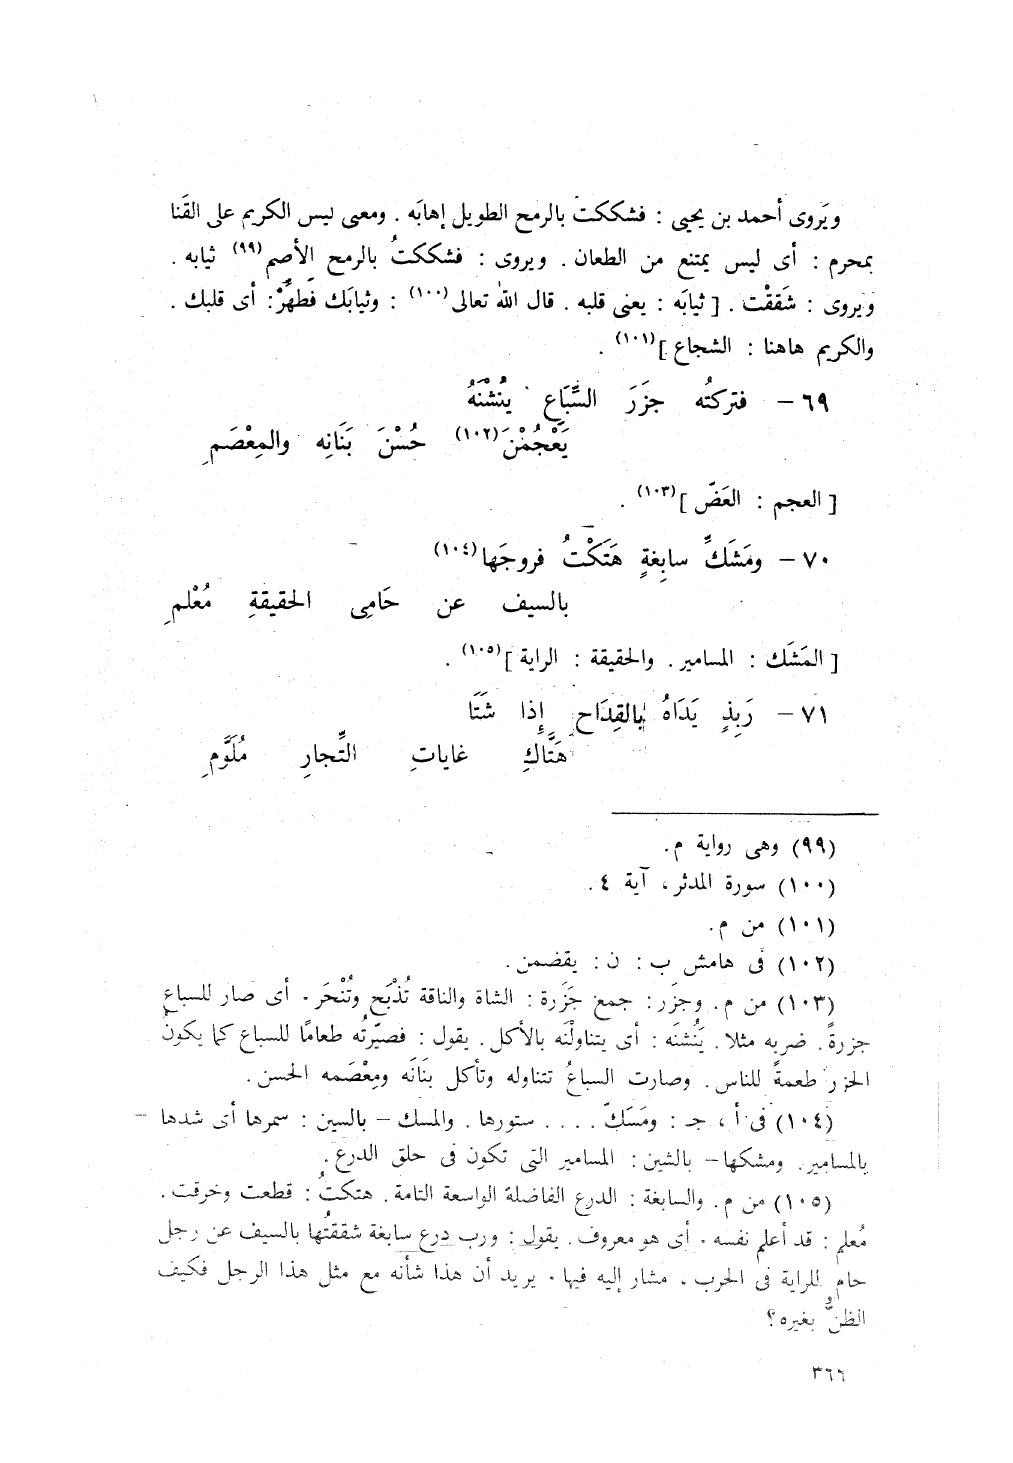 ويَروى أحمد بن يحيى : فشككتُ بالرمح الطويل إهابَه . ومعنى ليس الكريم على القَنا
بمحرم : أى ليس يمتنع من الطعان . ويروى : فشككتُ بالرمح الأصم(٩٩) ثيابه .
ويروى : شَققْت . [ ثيابَه : يعنى قلبه . قال الله تعالى(١٠٠) : وثيابَك فَطهِّرْ: أى قلبك .
والكريم هاهنا : الشجاع ](١٠١) .
٦٩ – فتركتُه جزَرَ السِّبَاعِ يَنُشْنَهُ
يَعْجُمْنَ(١٠٢) حُسْنَ بَنَانِه والمِعْصَمِ
[ العجم : العَضّ ](١٠٣) .
٧٠ – ومَشَكِّ سابِغةٍ هَتَكْتُ فروجَها(١٠٤)
بالسيف عن حَامِى الحقيقةِ مُعْلمِ
[ المَشَك : المسامير . والحقيقة : الراية ](١٠٥) .
٧١ – رَبِذٍ يَدَاهُ بالقِدَاحِ إِذا شَتَا
هَتَّاكِ غاياتِ التِّجارِ مُلَوَّمِ
(٩٩) وهى رواية م.
(١٠٠) سورة المدثر، آية ٤.
(١٠١) من م.
(١٠٢) فى هامش ب : ن : يقضمن.
(١٠٣) من م. وجزَر: جمع جَزَرة : الشاة والناقة تُذْبَح وتُنْحَر . أى صار للسباع
جزرةً. ضربه مثلا. يَنُشنَه : أى يتناولْنَه بالأكل. يقول : فصيّرتُه طعامًا للسباع كما يكونُ
الجزر طعمةً للناس. وصارت السباعُ تتناوله وتأكل بنَانَه ومِعْصَمه الحسن.
(١٠٤) فى أ ، جـ : ومَسَكّ .... ستورها. والمسك – بالسين : سمرها أى شدها
بالمسامير. ومشكها – بالشين : المسامير التى تكون فى حلق الدرع.
(١٠٥) من م. والسابغة : الدرع الفاضلة الواسعة التامة. هتكتُ : قطعت وخرقت.
مُعلم : قد أعلم نفسه . أى هو معروف. يقول : ورب درع سابغة شققتُها بالسيف عن رجل
حامٍ للراية فى الحرب . مشار إليه فيها . يريد أن هذا شأنه مع مثل هذا الرجل فكيف
الظنُّ بغيره؟
٣٦٦